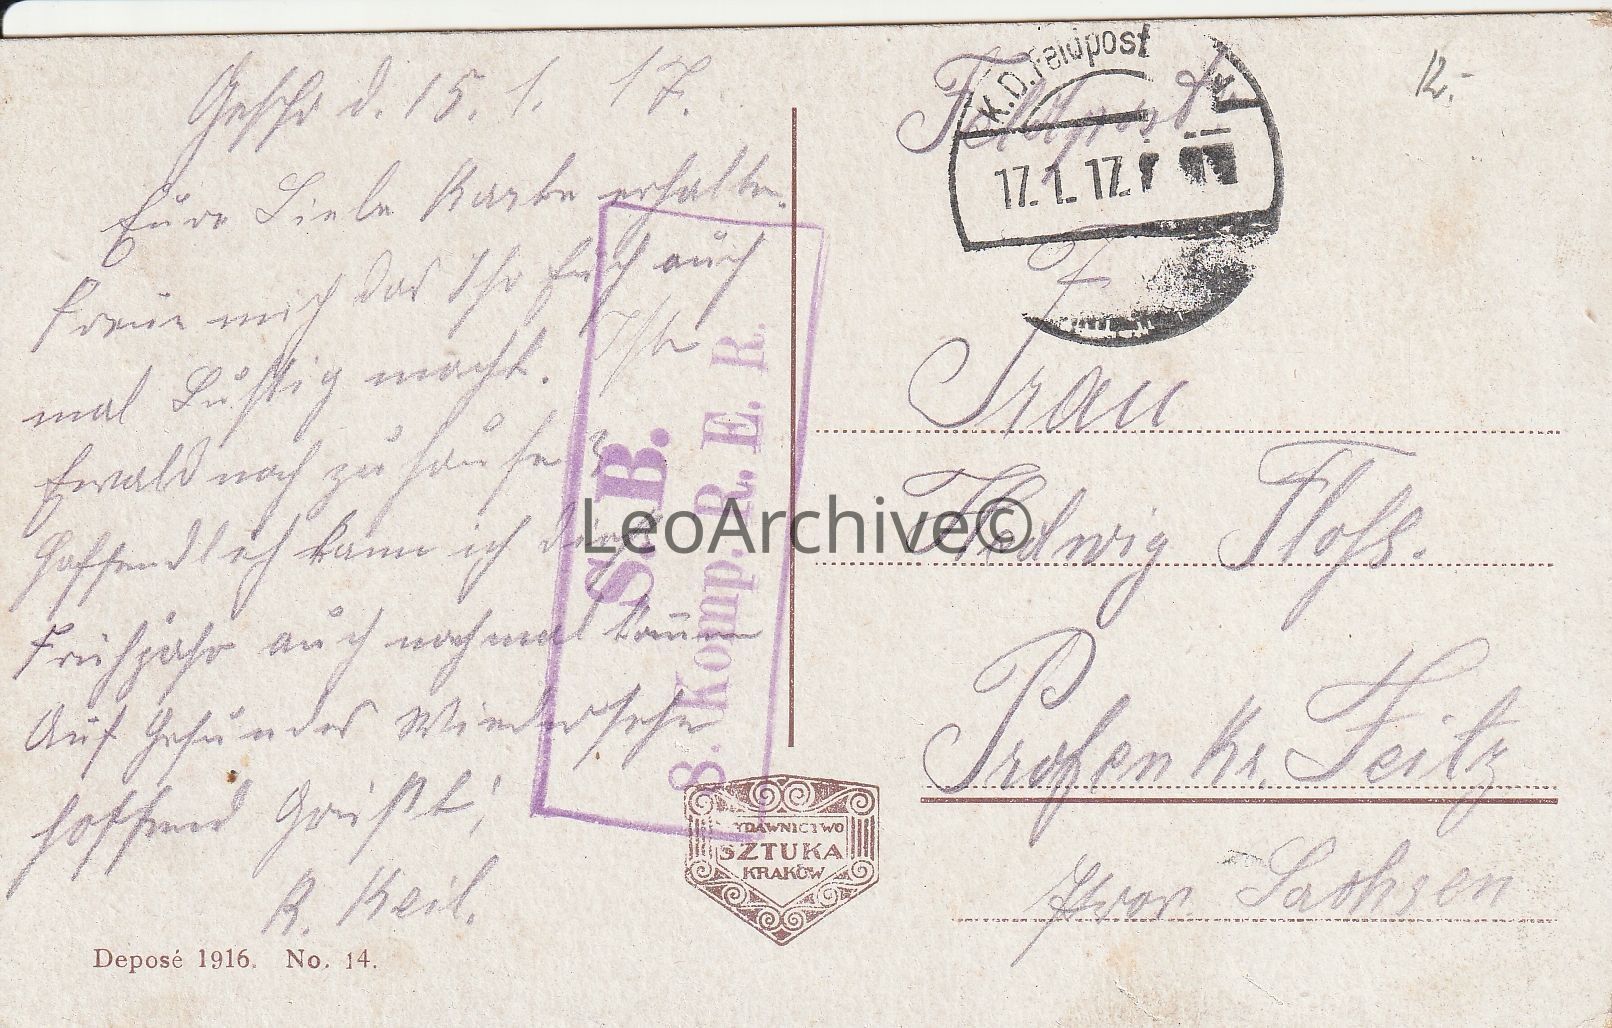 Geschr d. 15. 1. 17.
Eure Liebe Karte erhalten.
Freue mich das Ihr Euch auch
mal Lustig macht. Ist
Ewald noch zu hause?
Hoffendlich kann ich dieses
Frühjahr auch nochmal kommen
Auf Gesundes Wiedersehn
hoffend Grüßt!
R. Keil.
Deposé 1916. No. 14.
S. B.
8. Komp. R. E. R.
WYDAWNICTWO
SZTUKA
KRAKÓW
LeoArchive©
K.D. Feldpost
17.1.17.
12.-
Feldpost
Frau
Hedwig Floß.
Profen Kr. Zeitz
Prov. Sachsen